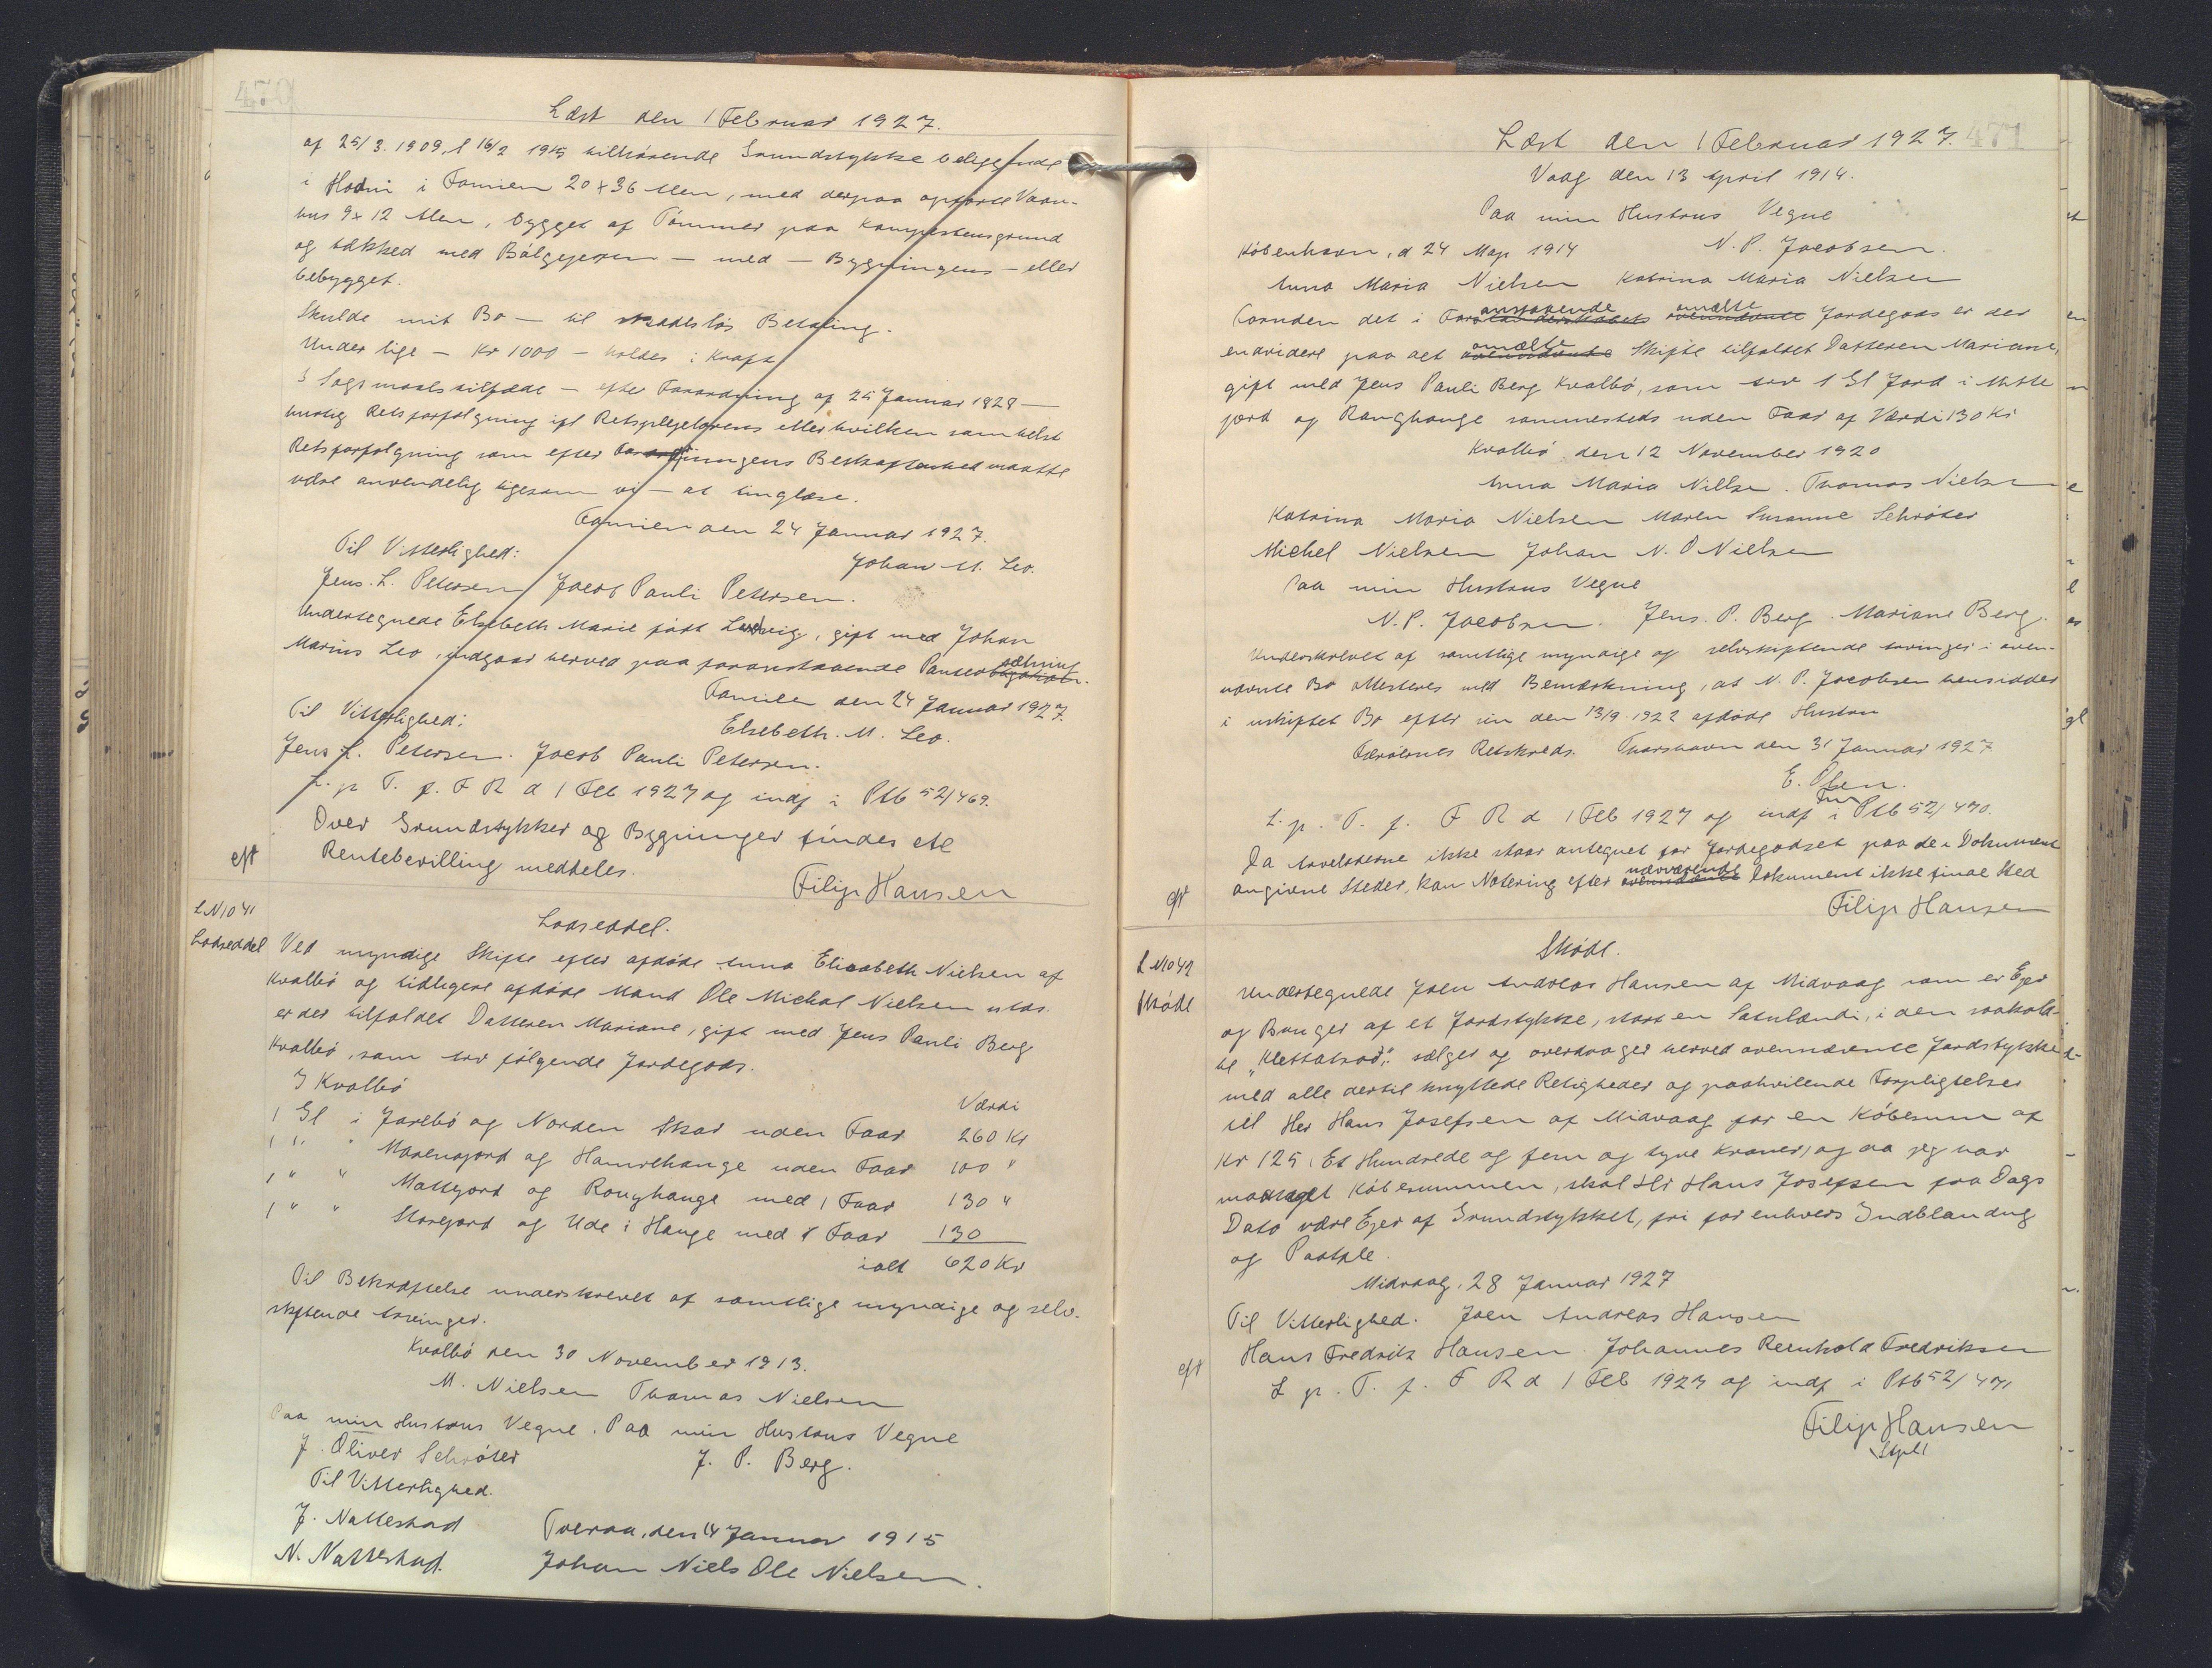 470
Læst den 1 Februar 1927.
af 25/3. 1909, & 16/2 1915 tilhørende Grundstykke beliggende
i Hodni i Famien 20 x 36 Alen, med derpaa opførte Vaan-
hus 9 x 12 Alen, bygget af Tømmer paa Kampestensgrund
og tækked med Bølgejern — med — Bygningens — eller
bebygget.
Skulde mit Bo — til skadesløs Betaling.
Under lige — Kr 1000 — holdes i Kraft
I Søgsmaalstilfælde — efter Forordning af 25 Januar 1828 —
hurtig Retsforfølgning ifl Retsplejelovens eller hvilken somhelst
Retsforfølgning som efter Fordringens Beskaffenhed maatte
være anvendelig ligesom vi — at tinglæse.
Famien den 24 Januar 1927.
Til Vitterlighed: Johan M. Leo.
Jens. L. Petersen Jacob Pauli Petersen.
Undertegnede Elsebeth Marie født Ludvig, gift med Johan
Marius Leo, indgaar herved paa foranstaaende Pantsætning
Famien den 24 Januar 1927.
Til Vitterlighed: Elsebeth. M. Leo.
Jens L. Petersen. Jacob Pauli Petersen.
L. p. T. f. F R d 1 Feb 1927 og indf i Ptb 52/469.
Over Grundstykker og Bygninger findes ete
Rentebevilling meddeles.
eft
Filip Hansen
L N 1041
Lodseddel
Lodseddel.
Ved myndige Skifte efter afdøde Anna Elisabeth Nielsen af
Kvalbø og tidligere afdøde Mand Ole Michal Nielsen sstds.
er der tilfaldet Datteren Mariane, gift med Jens Pauli Berg
Kvalbø, som Arv følgende Jordegods.
I Kvalbø
Værdi
1 Gl i Jarebø og Norden Skar uden Faar 260 Kr
1 " " Morensjord og Hamrehauge uden Faar 100 "
1 " " Mattejord og Ranghauge med 1 Faar 130 "
1 " " Storejord og Ude i Hauge med 1 Faar 130
ialt 620 Kr
Til Bekræftelse underskrevet af samtlige myndige og selv-
skiftende Arvinger.
Kvalbø den 30 November 1913.
M. Nielsen Thomas Nielsen
Paa min Hustrus Vegne. Paa min Hustrus Vegne
J. Oliver Schrøter J. P. Berg.
Til Vitterlighed.
J. Nattestad Tveraa, den 14 Januar 1915
N. Nattestad. Johan Niels Ole Nielsen.
471
Læst den 1 Februar 1927.
Vaag den 13 April 1914.
Paa min Hustrus Vegne
København, d 24 Maj 1914 N. P. Jacobsen.
Anna Maria Nielsen Katrina Maria Nielsen
Foruden det i foranstaaende omælte Jordegods er der
endvidere paa det omælte Skifte tilfaldet Datteren Mariane,
gift med Jens Pauli Berg Kvalbø, som Arv 1 Gl Jord i Matte
jord og Ranghauge sammesteds uden Faar af Værdi 130 Kr
Kvalbø den 12 November 1920
Anna Maria Nillse. Thomas Nielsen
Katrina Maria Nielsen Maren Susanne Schrøter
Michel Nielsen Johan N. O Nielsen
Paa min Hustrus Vegne
N. P. Jacobsen. Jens. P. Berg. Mariane Berg.
Underskrevet af samtlige myndige og selvskiftende Arvinger i oven-
nævnte Bo Attesteres med Bemærkning, at N. P. Jacobsen hensidder
i uskiftet Bo efter sin den 13/9 1922 afdøde Hustru
Færøernes Retskreds. Thorshavn den 31 Januar 1927
E. Olsen.
Fm
L. p. T. f. F R d 1 Feb 1927 og indf i Ptb 52/470.
Da Arveladerne ikke staar antegnet for Jordegodset paa de i Dokument
angivne Steder, kan Notering efter nærværende Dokument ikke finde Sted
eft
Filip Hansen
L N 1042
Skøde
Skøde.
Undertegnede Joen Andreas Hansen af Midvaag som er Ejer
og Bruger af et Jordstykke, stort en Satulændi, i den saakald-
te "Klettatrød", sælger og overdrager herved ovennævnte Jordstykke
med alle dertil knyttede Retigheder og paahvilende Forpligtelser
til Her Hans Josefsen af Midvaag for en Købesum af
Kr 125 (Et Hundrede og fem og tyve Kroner) og da jeg har
modtaget Købesummen, skal Hr Hans Josefsen fra Dags
Dato være Ejer af Grundstykket, fri for enhvers Indblanding
og Paatale.
Midvaag, 28 Januar 1927
Til Vitterlighed. Joen Andreas Hansen
Hans Fredrik Hansen. Johannes Reinhold Fredriksen
eft
L p. T. f. F R d 1 Feb 1927 og indf i Ptb 52/471
Filip Hansen